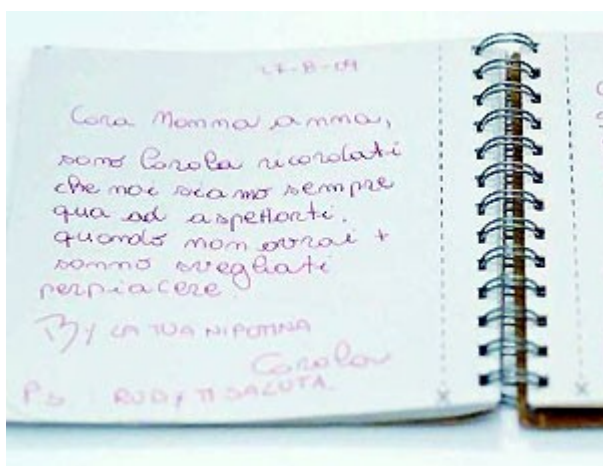 27-8-09
Cara Nonna anna,
sono Carola ricordati
che noi siamo sempre
qua ad aspettarti.
quando non avrai +
sonno svegliati
perpiacere.
By LA TUA NIPOTINA
Carola
P.S. RUDY TI SALUTA.